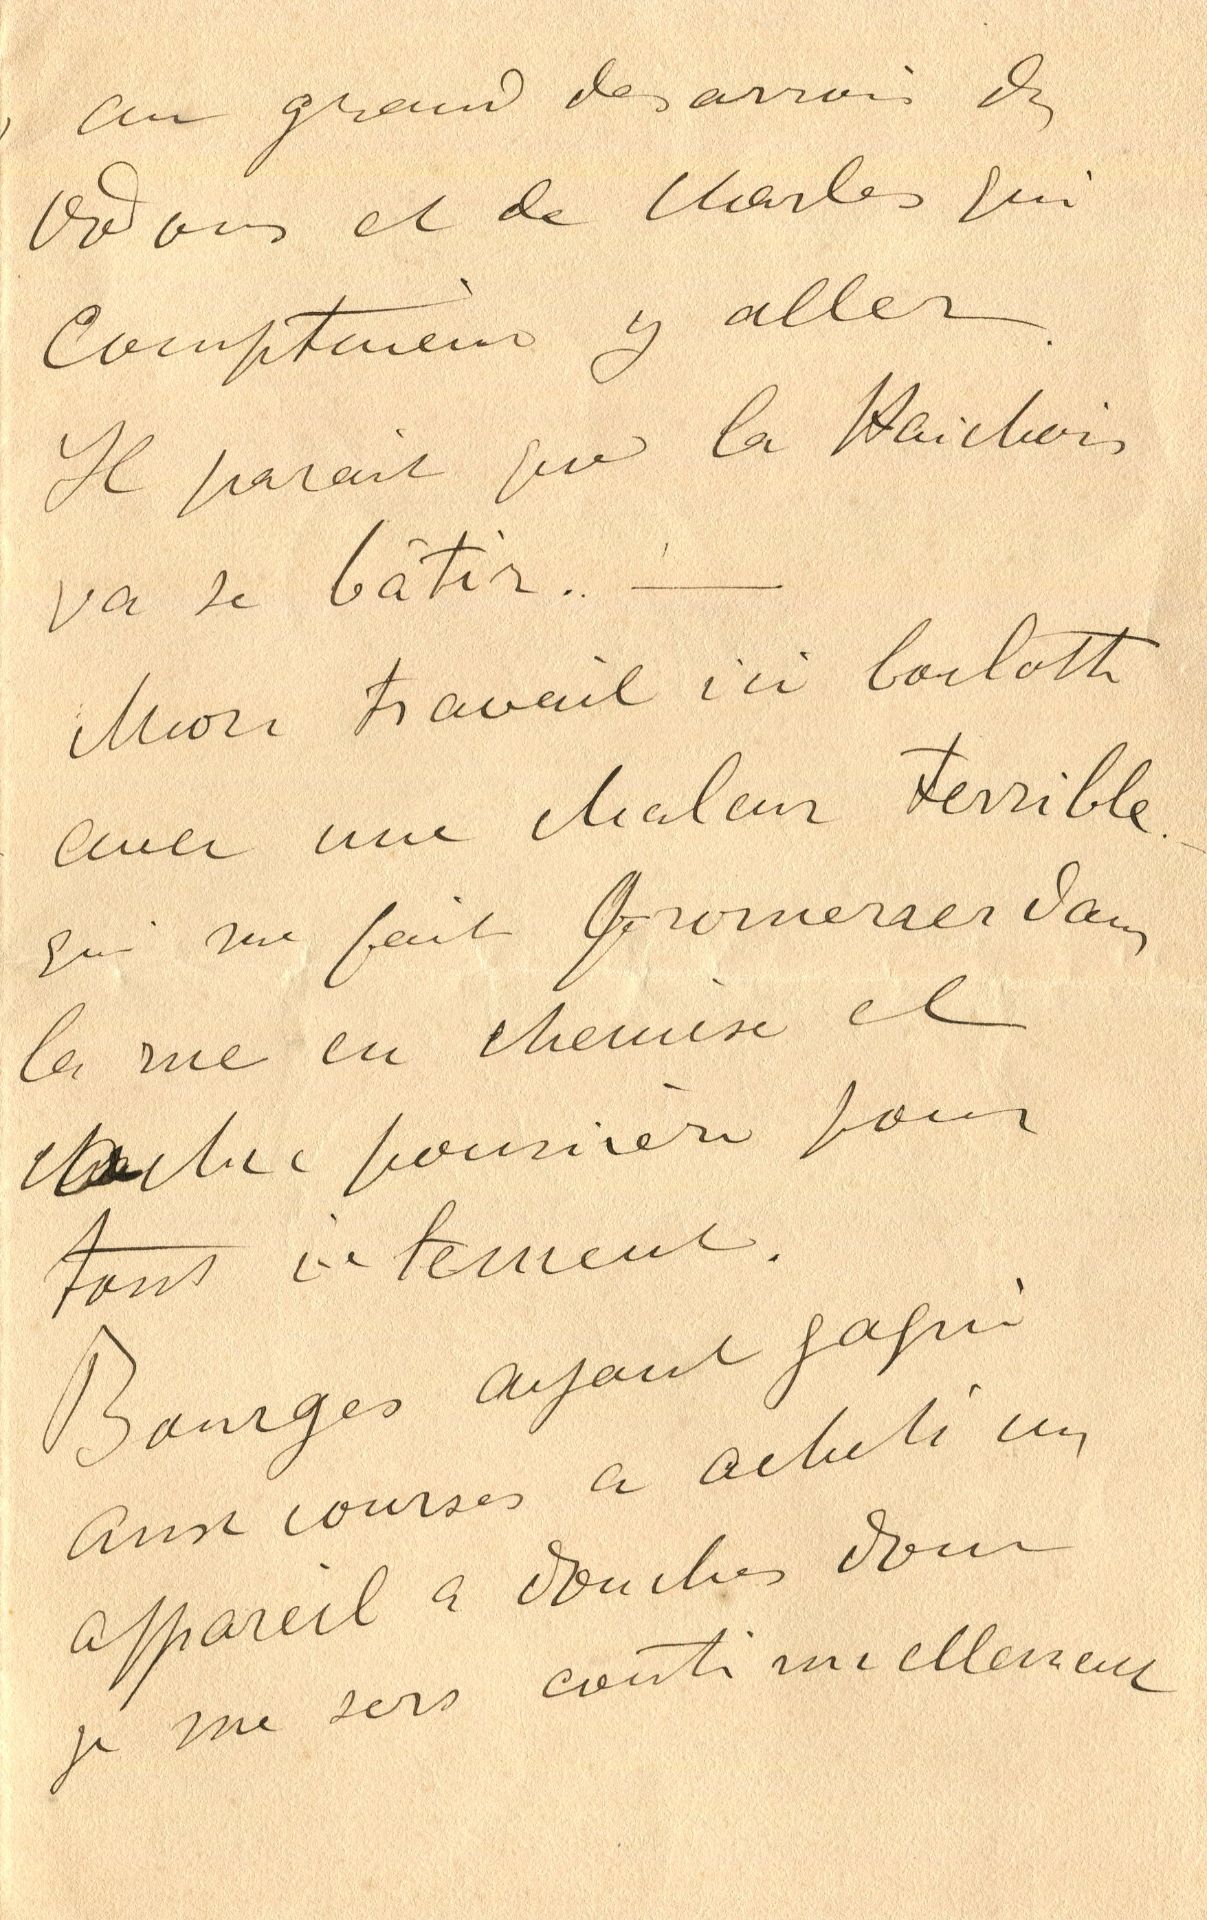 au grand desarrois des
Odons et de Charles qui
comptaient y aller.
Il parait que la
va se bâtir.. —
Mon travail ici boulotte
avec une chaleur terrible. —
qui me fait promener dans
la rue en chemise et
cache poussière pour
tout vetement.
Bourges ayant gagné
aux courses a acheté un
appareil a douches dont
je me sers continuellement